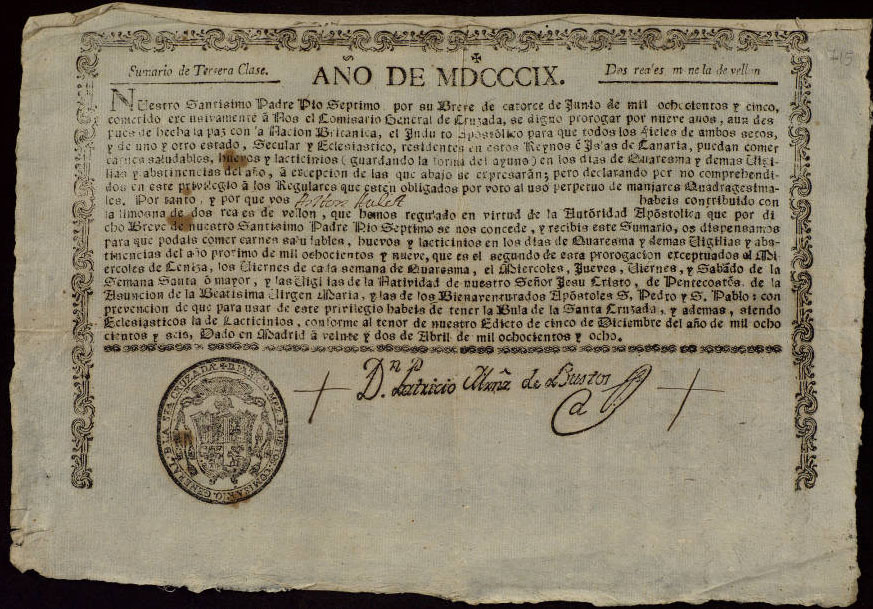 Sumario de Tersera Clase.
AÑO DE MDCCCIX.
Dos reales moneda de vellon
715
NUestro Santisimo Padre Pio Septimo por su Breve de catorce de Junto de mil ochocientos y cinco,
cometido exclusivamente â Nos el Comisario General de Cruzada, se digno prorogar por nueve años, aun des
pues de hecha la paz con la Nacion Britanica, el Indulto Apostólico para que todos los fieles de ambos secos,
y de uno y otro estado, Secular y Eclesiastico, residentes en estos Reynos è Islas de Canaria, puedan comer
carnes saludables, huevos y lacticinios (guardando la forma del ayuno) en los dias de Quaresma y demas Vigi
lias y abstinencias del año, à excepcion de las que abajo se expresarán; pero declarando por no comprehendi
dos en este privilegio â los Regulares que esten obligados por voto al uso perpetuo de manjares Quadragesima-
les. Por tanto, y por que vos habeis contribuido con
la limosna de dos reales de vellon, que hemos regulado en virtud de la Autóridad Apostolica que por di
cho Breve de nuestro Santisimo Padre Pio Septimo se nos concede, y recibis este Sumario, os dispensamos
para que podais comer carnes saludables, huevos y lacticinios en los dias de Quaresma y demas Vigilias y abs-
tinencias del año procimo de mil ochocientos y nueve, que es el segundo de esta prorogacion exceptuados el Mi
ercoles de Ceniza, los Viernes de cada semana de Quaresma, el Miercoles, Jueves, Viernes, y Sabádo de la
Semana Santa ô mayor, y las Vigilias de la Natividad de nuestro Señor Jesu Cristo, de Pentecostés. de la
Asuncion de la Beatisima Virgen Maria, y las de los Bienaventurados Apóstoles S. Pedro y S. Pablo: con
prevencion de que para usar de este privilegio habeis de tener la Bula de la Santa Cruzada, y ademas, siendo
Eclesiasticos la de Lacticinios, conforme al tenor de nuestro Edicto de cinco de Diciembre del año de mil ocho
cientos y seis, Dado en Madrid â veinte y dos de Abril de mil ochocientos y ocho.
Dn. Patricio Mrnz de Bustos
COMISARIO GENERAL D LA STA CRUZADA